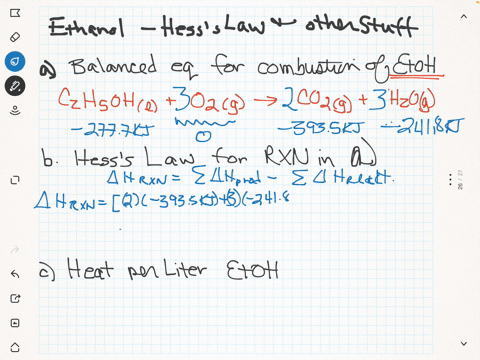 Ethanol - Hess's Law & other Stuff
a) Balanced eq for combustion of EtOH
C2H5OH(l) + 3O2(g) → 2CO2(g) + 3H2O(g)
-277.7KJ 0 -393.5KJ -241.8KJ
b. Hess's Law for RXN in a)
ΔHRXN = ΣΔHprod - ΣΔHreact.
ΔHRXN = [(2)(-393.5KJ)+(3)(-241.8
c) Heat per Liter EtOH